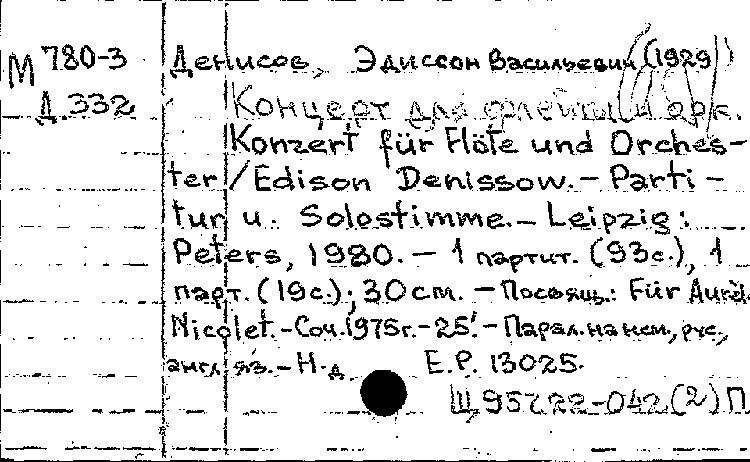 М 780-3 Денисов, Эдиссон Васильевич (1929)
Д 332 Концерт для флейты и орк.
Konzert für Flöte und Orches-
ter / Edison Denissow. – Parti-
tur u. Solostimme. – Leipzig:
Peters, 1980. – 1 партит. (93с.), 1
парт. (19с.); 30 cm. – Посвящ.: Für Aurèl.
Nicolet. – Соч. 1975г. – 25'. – Парал. на нем., рус.,
англ. яз. – Н.д. E.P. 13025.
Щ 957.22-042(2) П